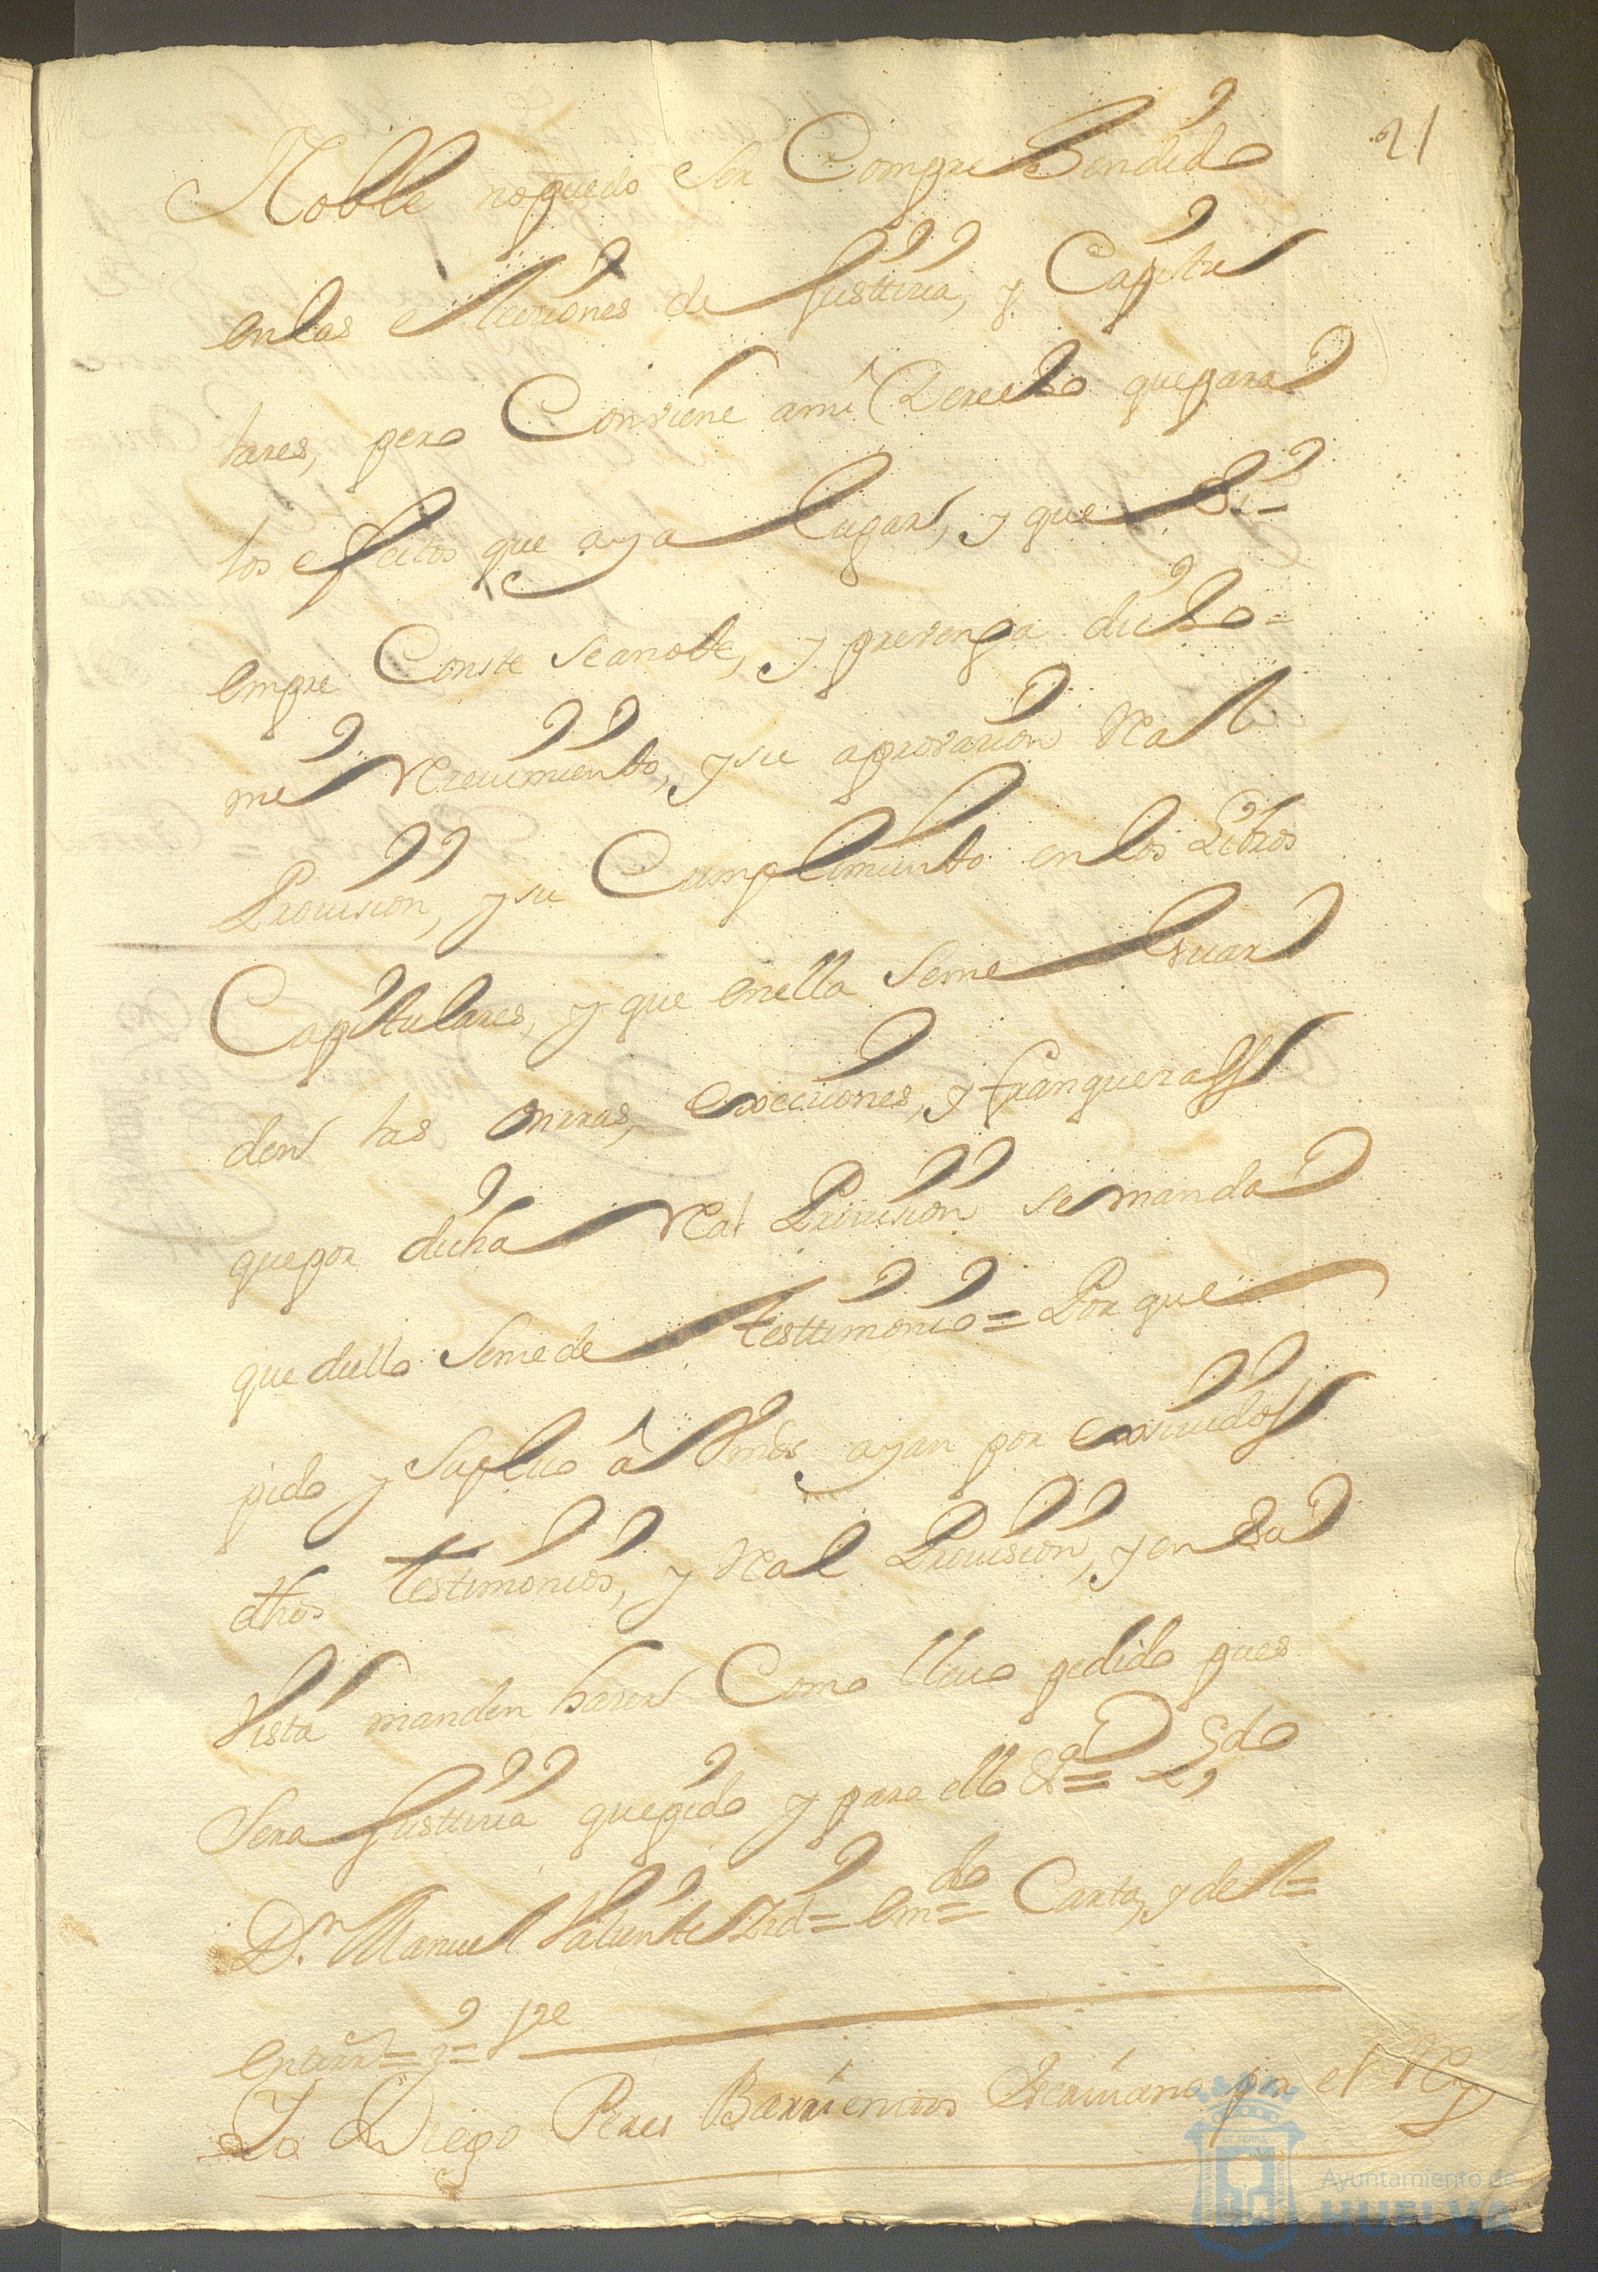 21
Noble nopuedo Ser Comprehendido
enlas elecciones de Justticia, y Capitu
lares, pero Conviene ami Derecho quepara
los efectos que aya lugar, y que Si=
empre Conste Seanote, y prevenga dicho=
me Recevimiento, y su aprovacion Real
Provision, y su Cumplimiento en los Libros
Capitulares, y que enella Seme Guar
den las onrras, exocciones, y franquezas
quepor dicha Real Provision se manda
que dello Semede testtimonio= Por que
pido y Suplico â Vmds ayan por exsividos
dhos testimonios, y Real Provision, y en Su
Vista manden hacer Como llevo pedido pues
Sera Justticia quepido y para ello &a=
Dn Manuel Valiente = Emdo= Carta, y del=
entrerr= y=
Yo Diego Peres Barrientos Escrivano por el Rey
Ayuntamiento de
HUELVA